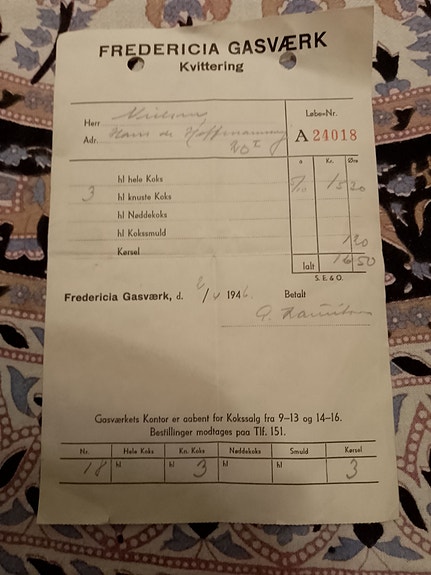 FREDERICIA GASVÆRK
Kvittering
Løbe=Nr.
Herr
Adr. Hans de
20
A 24018
a Kr. Øre
hl hele Koks
3 hl knuste Koks 5/10 15 30
hl Nøddekoks
hl Kokssmuld
Kørsel 1 20
Ialt 16 50
S. E & O.
Fredericia Gasværk, d. 2/4 1946. Betalt
Gasværkets Kontor er aabent for Kokssalg fra 9–13 og 14–16.
Bestillinger modtages paa Tlf. 151.
Nr. Hele Koks Kn. Koks Nøddekoks Smuld Kørsel
18 hl hl 3 hl hl 3